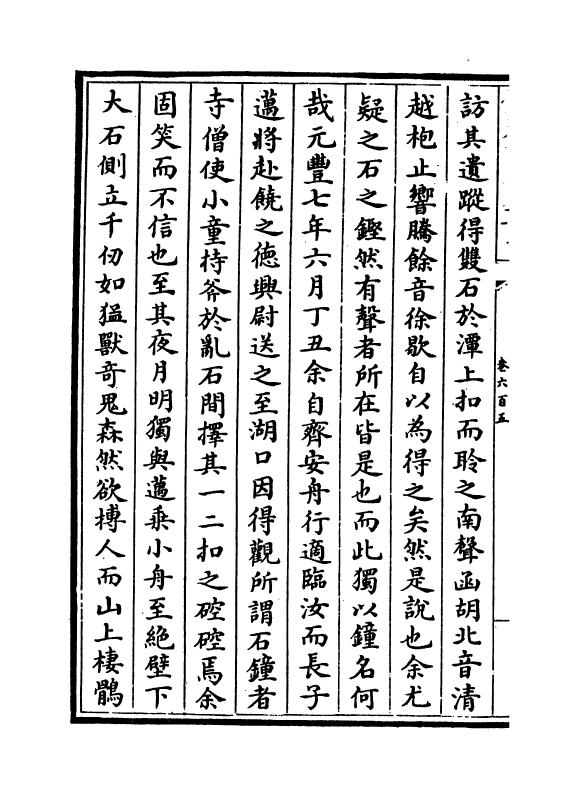 訪其遺蹤得雙石於潭上扣而聆之南聲函胡北音清
越枹止響騰餘音徐歇自以為得之矣然是說也余尤
疑之石之鏗然有聲者所在皆是也而此獨以鐘名何
哉元豐七年六月丁丑余自齊安舟行適臨汝而長子
邁將赴饒之徳興尉送之至湖口因得觀所謂石鐘者
寺僧使小童持斧於亂石間擇其一二扣之硿硿焉余
固笑而不信也至其夜月明獨與邁乗小舟至絶壁下
大石側立千仞如猛獸奇鬼森然欲搏人而山上棲鶻
卷六百五